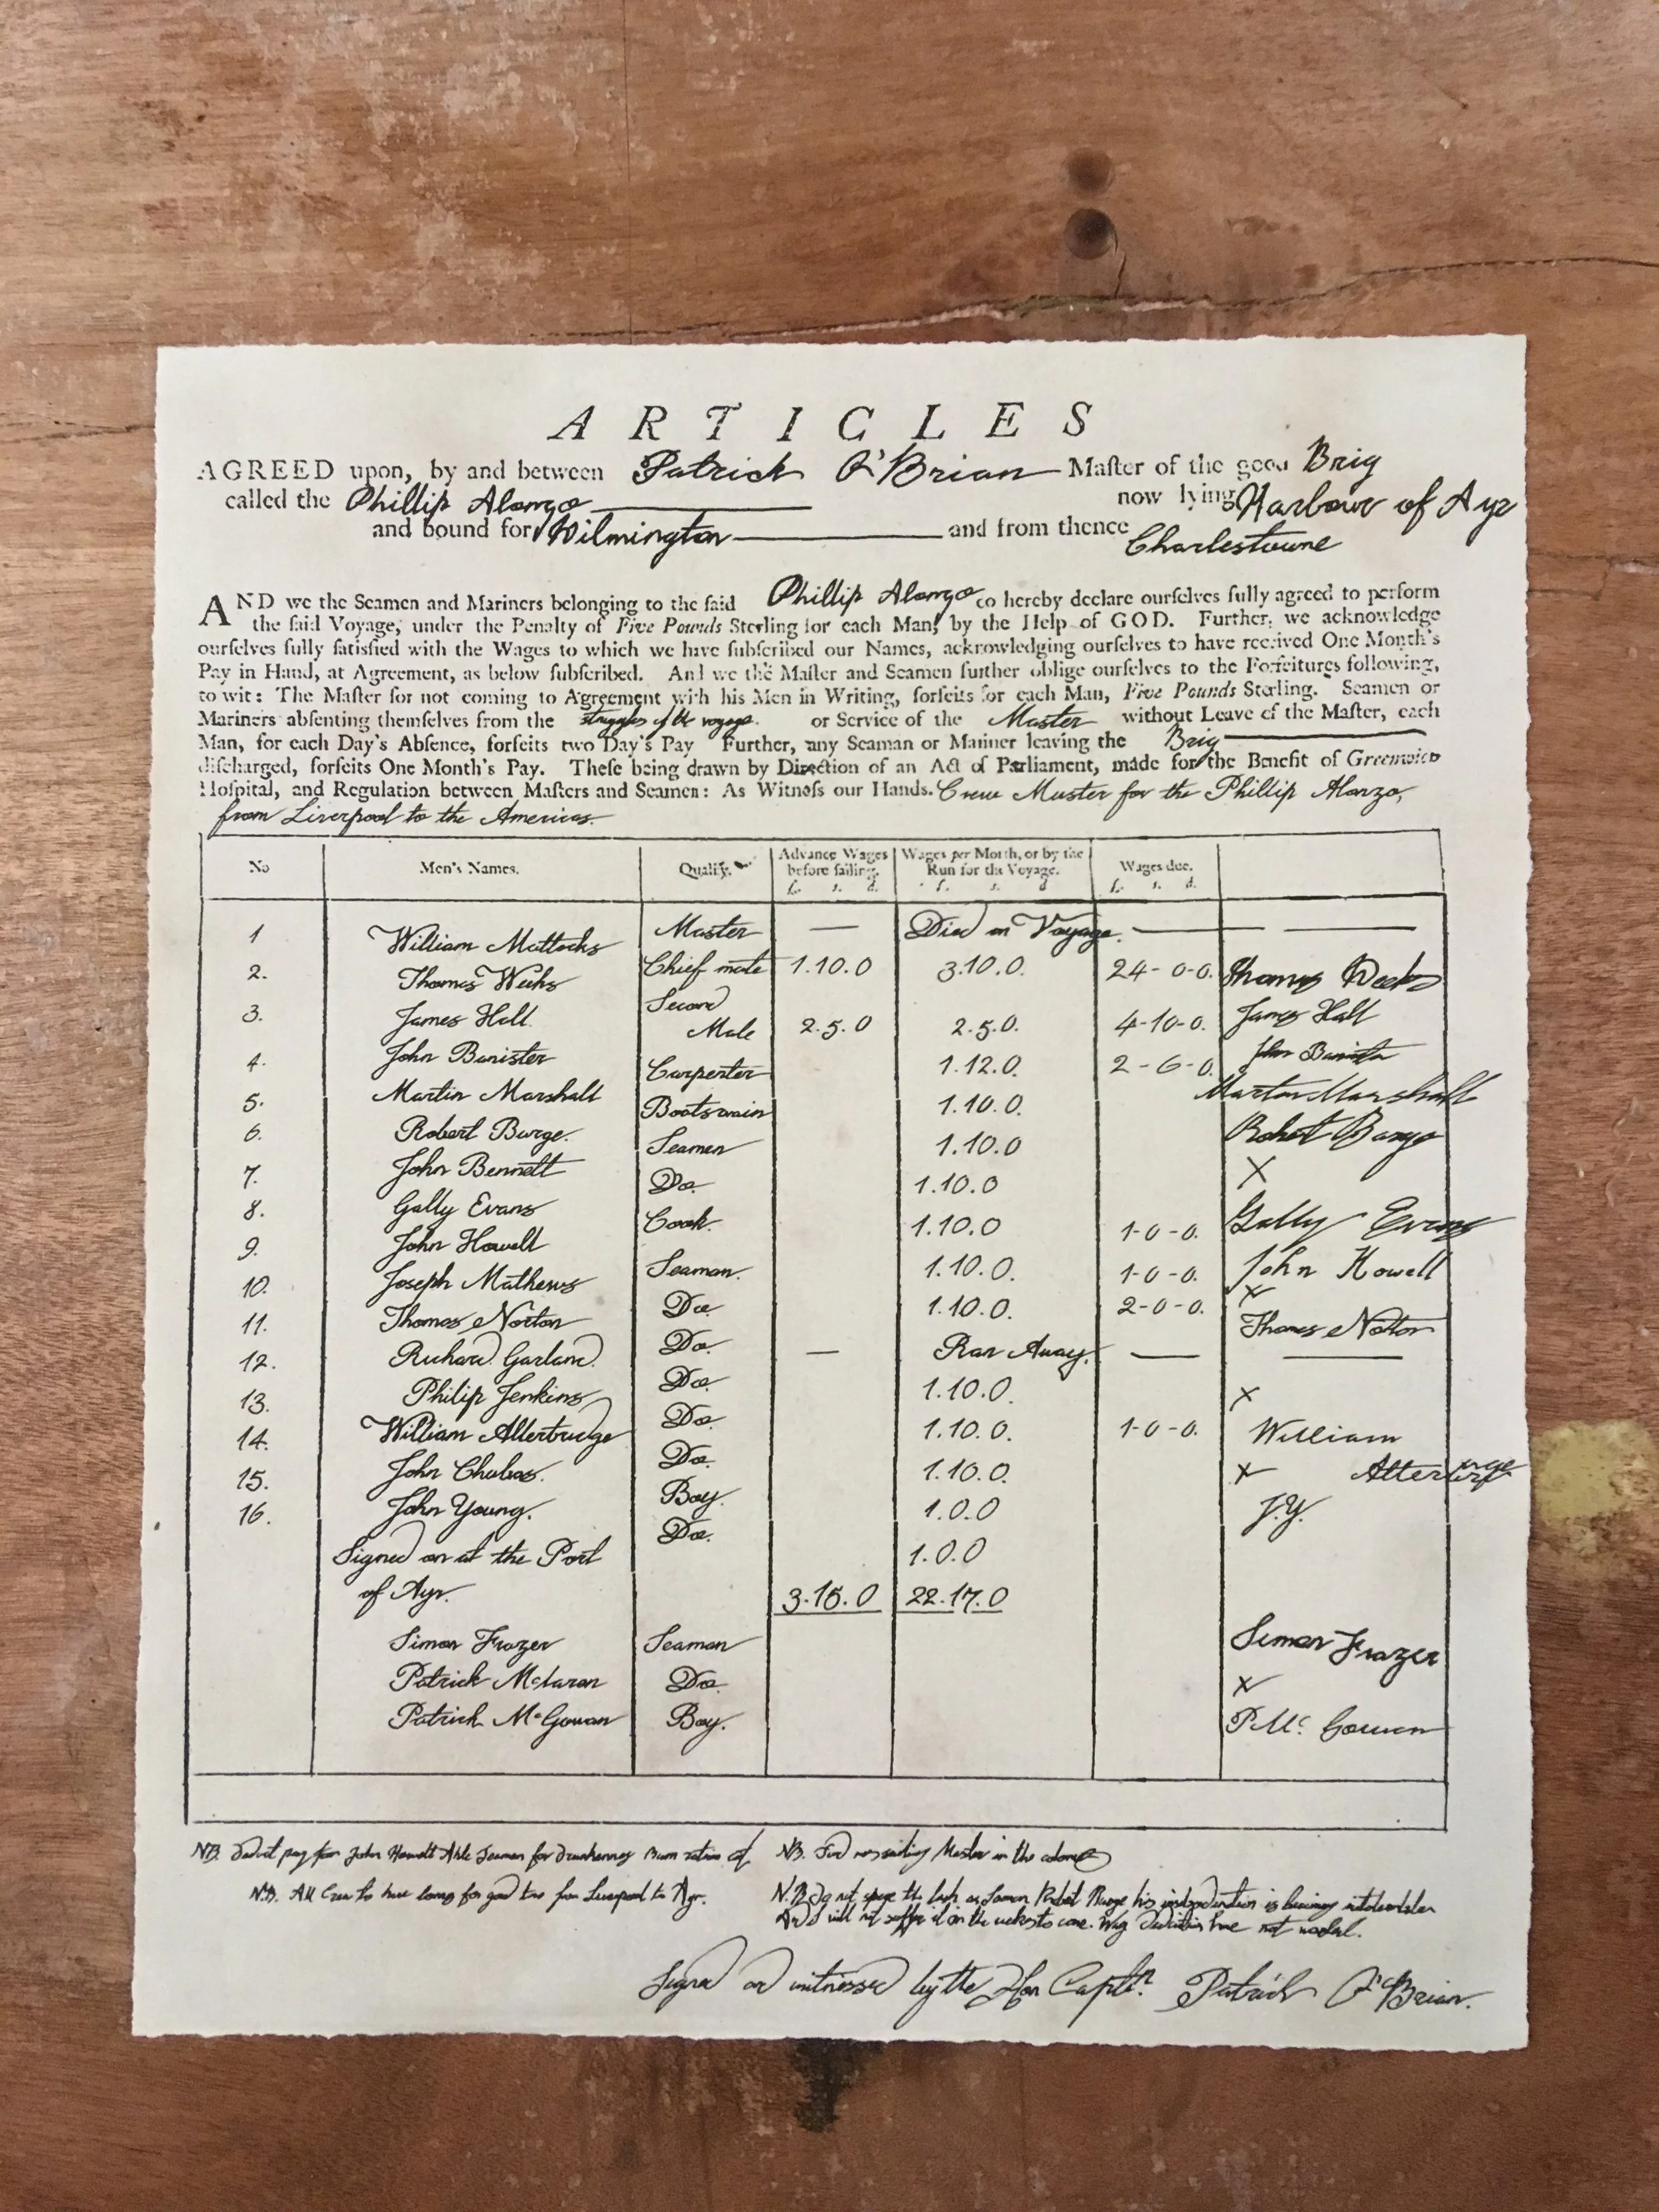 ARTICLES
AGREED upon, by and between Patrick O'Brian Maſter of the good Brig
called the Phillip Alonzo now lying Harbour of Ayr
and bound for Wilmington and from thence Charlestowne
AND we the Seamen and Mariners belonging to the ſaid Phillip Alonzo do hereby declare ourſelves fully agreed to perform
the ſaid Voyage, under the Penalty of Five Pounds Sterling for each Man, by the Help of GOD. Further, we acknowledge
ourſelves fully ſatisfied with the Wages to which we have ſubſcribed our Names, acknowledging ourſelves to have received One Month's
Pay in Hand, at Agreement, as below ſubſcribed. And we the Maſter and Seamen further oblige ourſelves to the Forfeitures following,
to wit: The Maſter for not coming to Agreement with his Men in Writing, forfeits for each Man, Five Pounds Sterling. Seamen or
Mariners abſenting themſelves from the struggles of the voyage. or Service of the Master without Leave of the Maſter, each
Man, for each Day's Abſence, forfeits two Day's Pay Further, any Seaman or Mariner leaving the Brig
diſcharged, forfeits One Month's Pay. Theſe being drawn by Direction of an Act of Parliament, made for the Benefit of Greenwich
Hoſpital, and Regulation between Maſters and Seamen: As Witneſs our Hands. Crew Muster for the Phillip Alonzo,
from Liverpool to the Americas.
No Men's Names. Qualify. Advance Wages before ſailing. £. s. d. Wages per Month, or by the Run for the Voyage. £. s. d Wages due. £. s. d.
1 William Mattocks Master — Died on Voyage. — —
2. Thomas Weeks Chief mate 1.10.0 3.10.0. 24-0-0. Thomas Weeks
3. James Hall Second Mate 2.5.0 2.5.0. 4-10-0. James Hall
4. John Banister Carpenter 1.12.0. 2-6-0. John Banister
5. Martin Marshall Boatswain 1.10.0. Martin Marshall
6. Robert Burge. Seamen 1.10.0 Robert Burge
7. John Bennett Do. 1.10.0 X
8. Gally Evans Cook. 1.10.0 1-0-0. Gally Evans
9. John Howell Seaman. 1.10.0. 1-0-0. John Howell
10. Joseph Mathews Do 1.10.0. 2-0-0. X
11. Thomas Norton Do. Thomas Norton
12. Richard Garland. Do — Ran Away. — —
13. Philip Jenkins Do 1.10.0. X
14. William Atterbridge Do. 1.10.0. 1-0-0. William
15. John Boy. 1.10.0. X
16. John Young. Do. 1.0.0 J.Y.
Signed on at the Port 1.0.0
of Ayr. 3.15.0 22.17.0
Simon Frazer Seaman Simon Frazer
Patrick McLaran Do. X
Patrick McGowan Boy. P. Mc Gowan
NB. pay for John Howell Able Seaman for drunkenness
NB. Master in the
N.B. All Crew to have for good from Liverpool to Ayr.
N.B. not spare the lash on Seaman Robert Burge his is
And I will not suffer it in the weeks to come. not
Signed and witnessed by the Hon Captn. Patrick O'Brian.